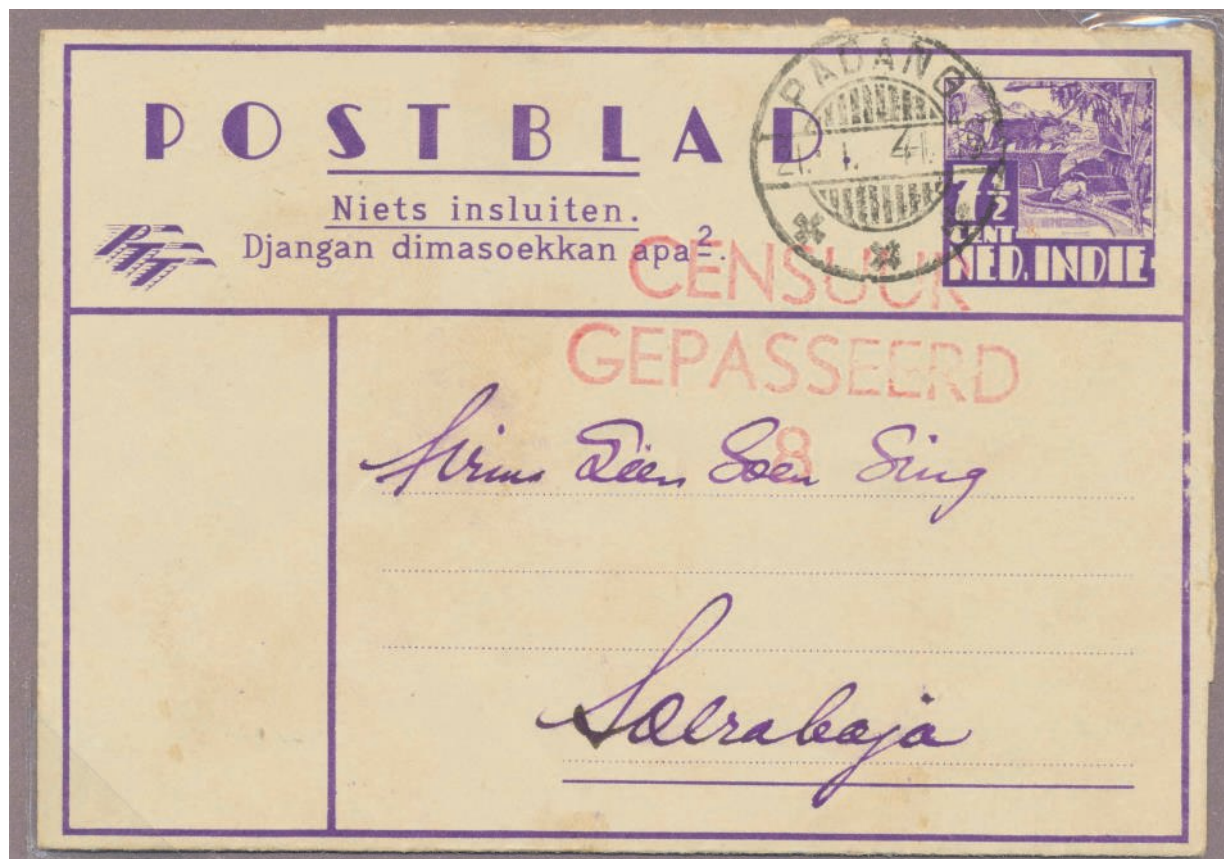 POSTBLAD
Niets insluiten.
Djangan dimasoekkan apa².
PTT
PADANG
21. 1. 41.
7½
CENT
NED. INDIE
CENSUUR
GEPASSEERD
8
Firma Soen Sing
Soerabaja